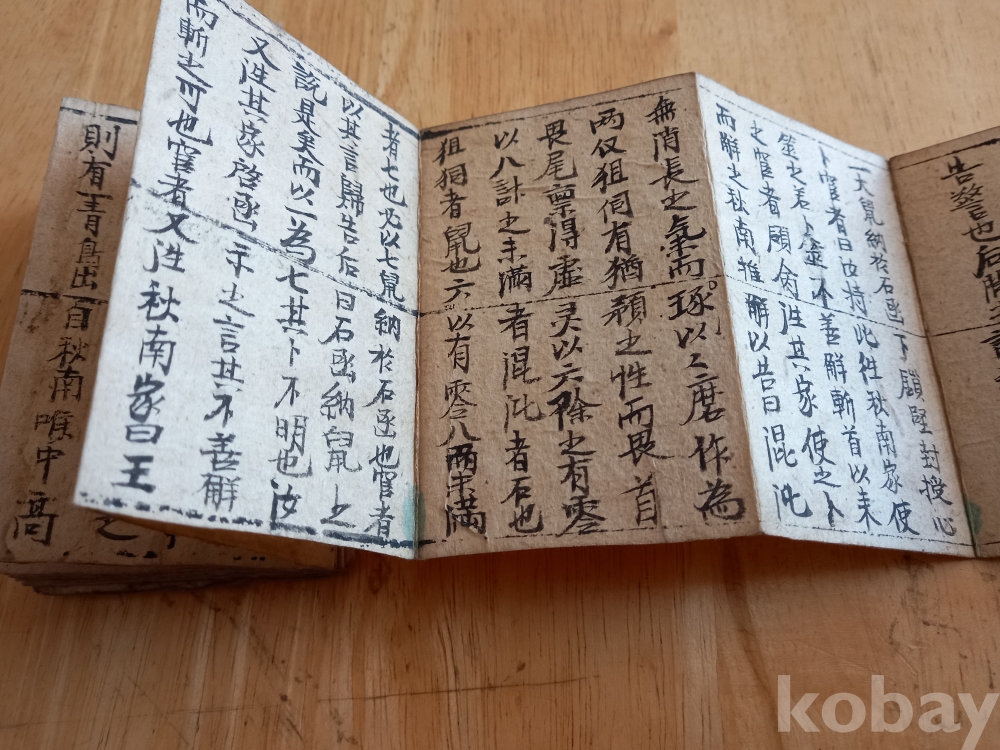 告発已也后聞
一大鼠納於石函下願堅封授心
卜官者曰汝持此徃秋南家使
筮之若卜筮不善觧斬首以来
之官者願肏泩其家使之卜
而觧之秋南推觧以告曰混沌
無消長之氣而琢以々磨作為
两仅狙伺有猶穎之性而畏首
畏尾禀得虛灵以六除之有零
以八計之未滿者混沌者石也
狙狪者鼠也六以有零八两未滿
者七也必以七鼠納於石函也官者
以其言歸告后曰石函納鼠之
說是矣而以一為七其卜不明也汝
又泩其家啓函示之言其不善觧
而斬之可也官者又泩秋南家曰王
則有青鳥出自秋南唯中高
之
kobay